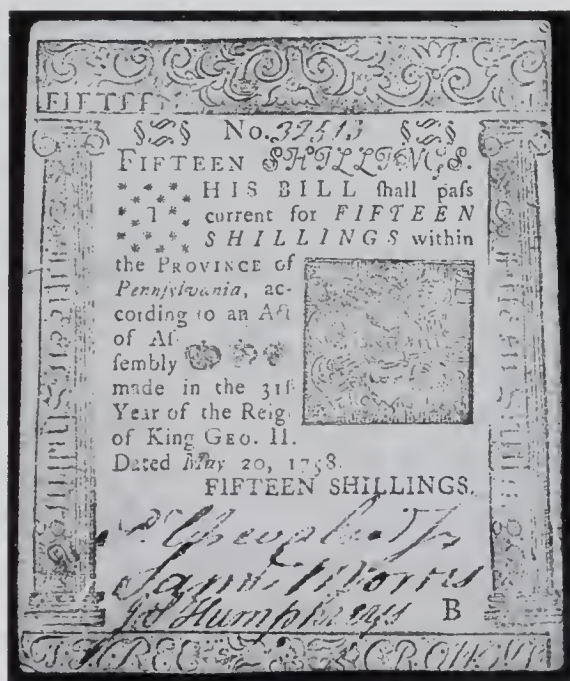 FIFTEE
No. 37513
FIFTEEN SHILLINGS.
THIS BILL ſhall paſs
current for FIFTEEN
SHILLINGS within
the PROVINCE of
Pennſylvania, ac-
cording to an Act
of Aſ-
ſembly
made in the 31ſt
Year of the Reig
of King GEO. II.
Dated May 20, 1758.
FIFTEEN SHILLINGS.
Saml. Morris
Jos Humphreys B
THREE CROWNS